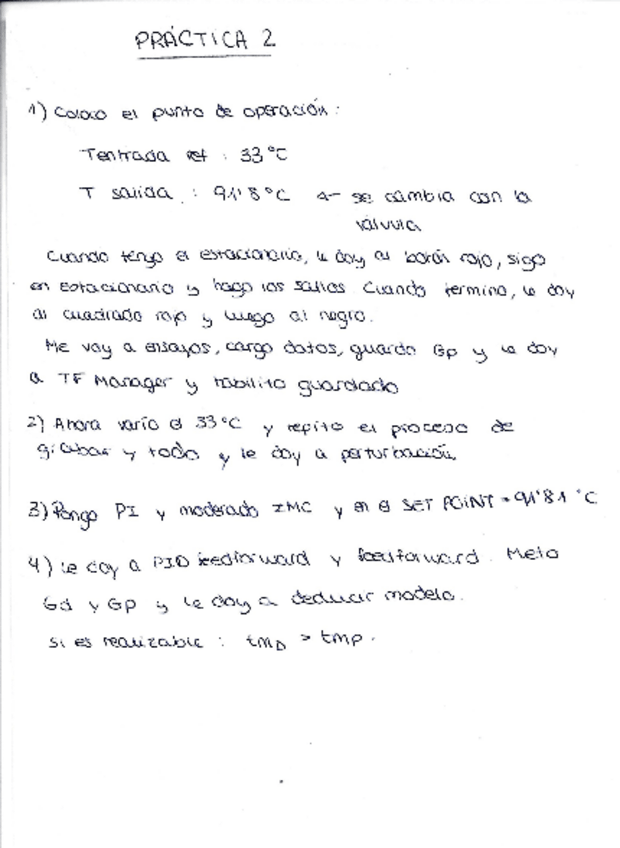 PRÁCTICA 2
1) Coloco el punto de operación:
Tentrada ref : 33°C
T salida : 91'8°C ← se cambia con la
válvula
Cuando tengo el estacionario, le doy al botón rojo, sigo
en estacionario y hago los saltos. Cuando termino, le doy
al cuadrado rojo y luego al negro.
Me voy a ensayos, cargo datos, guardo Gp y le doy
a TF Manager y habilito guardado
2) Ahora varío el 33°C y repito el proceso de
grabar y todo y le doy a perturbación.
3) Pongo PI y moderado IMC y en el SET POINT = 91'81 °C
4) Le doy a PID feedforward y feedforward. Meto
Gd y GP y le doy a deducir modelo.
Si es realizable : tmD > tmp.